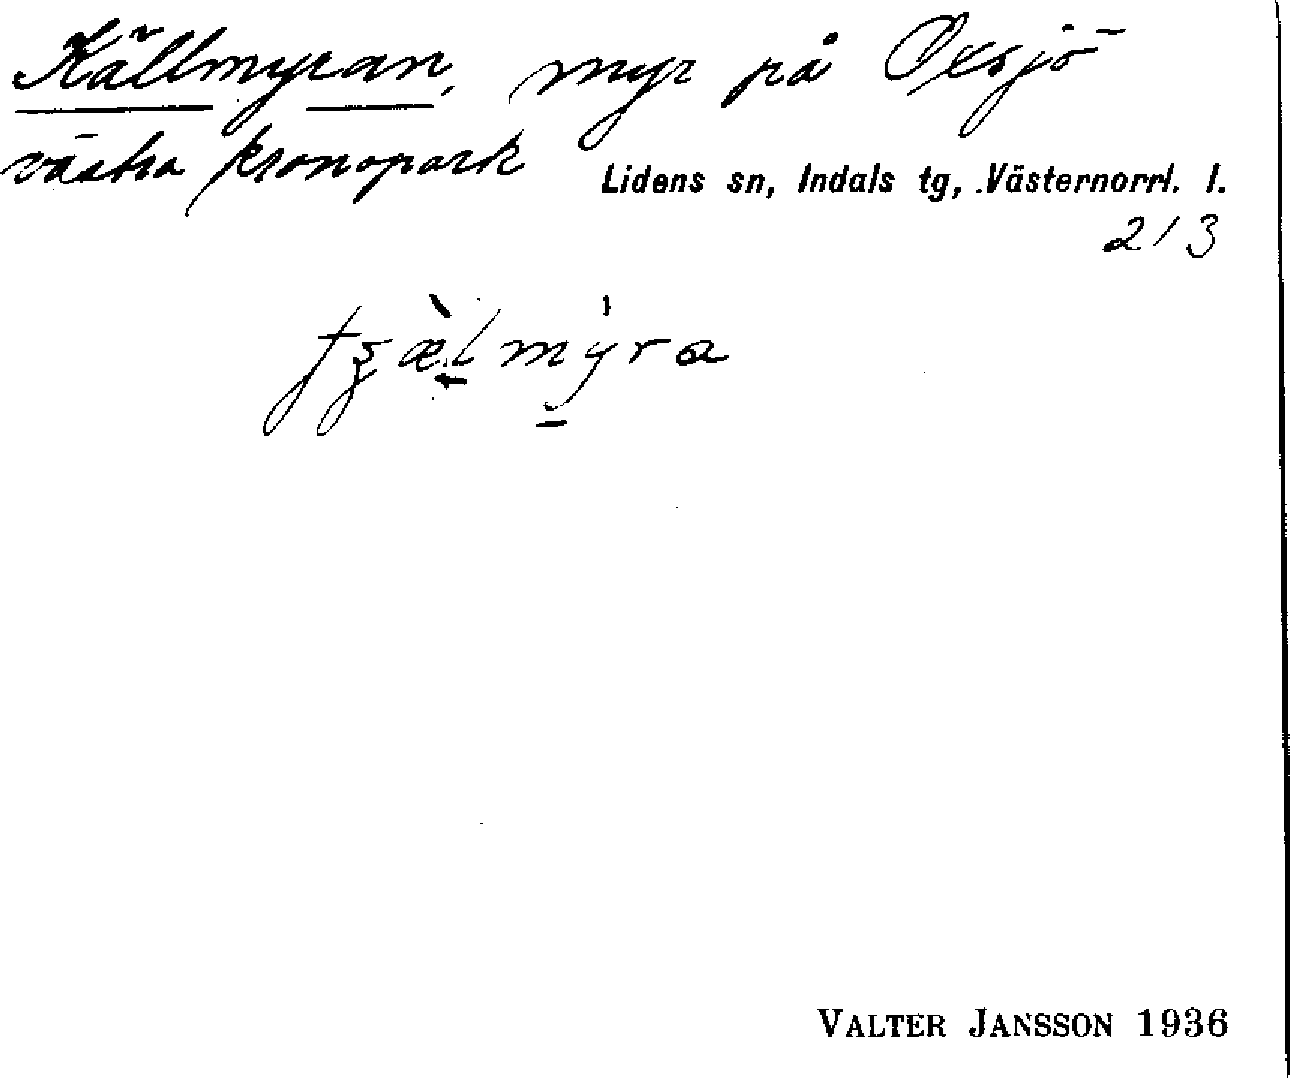 Källmyran, myr på Oxsjö
västra kronopark
Lidens sn, Indals tg, Västernorrl. l.
213
VALTER JANSSON 1936